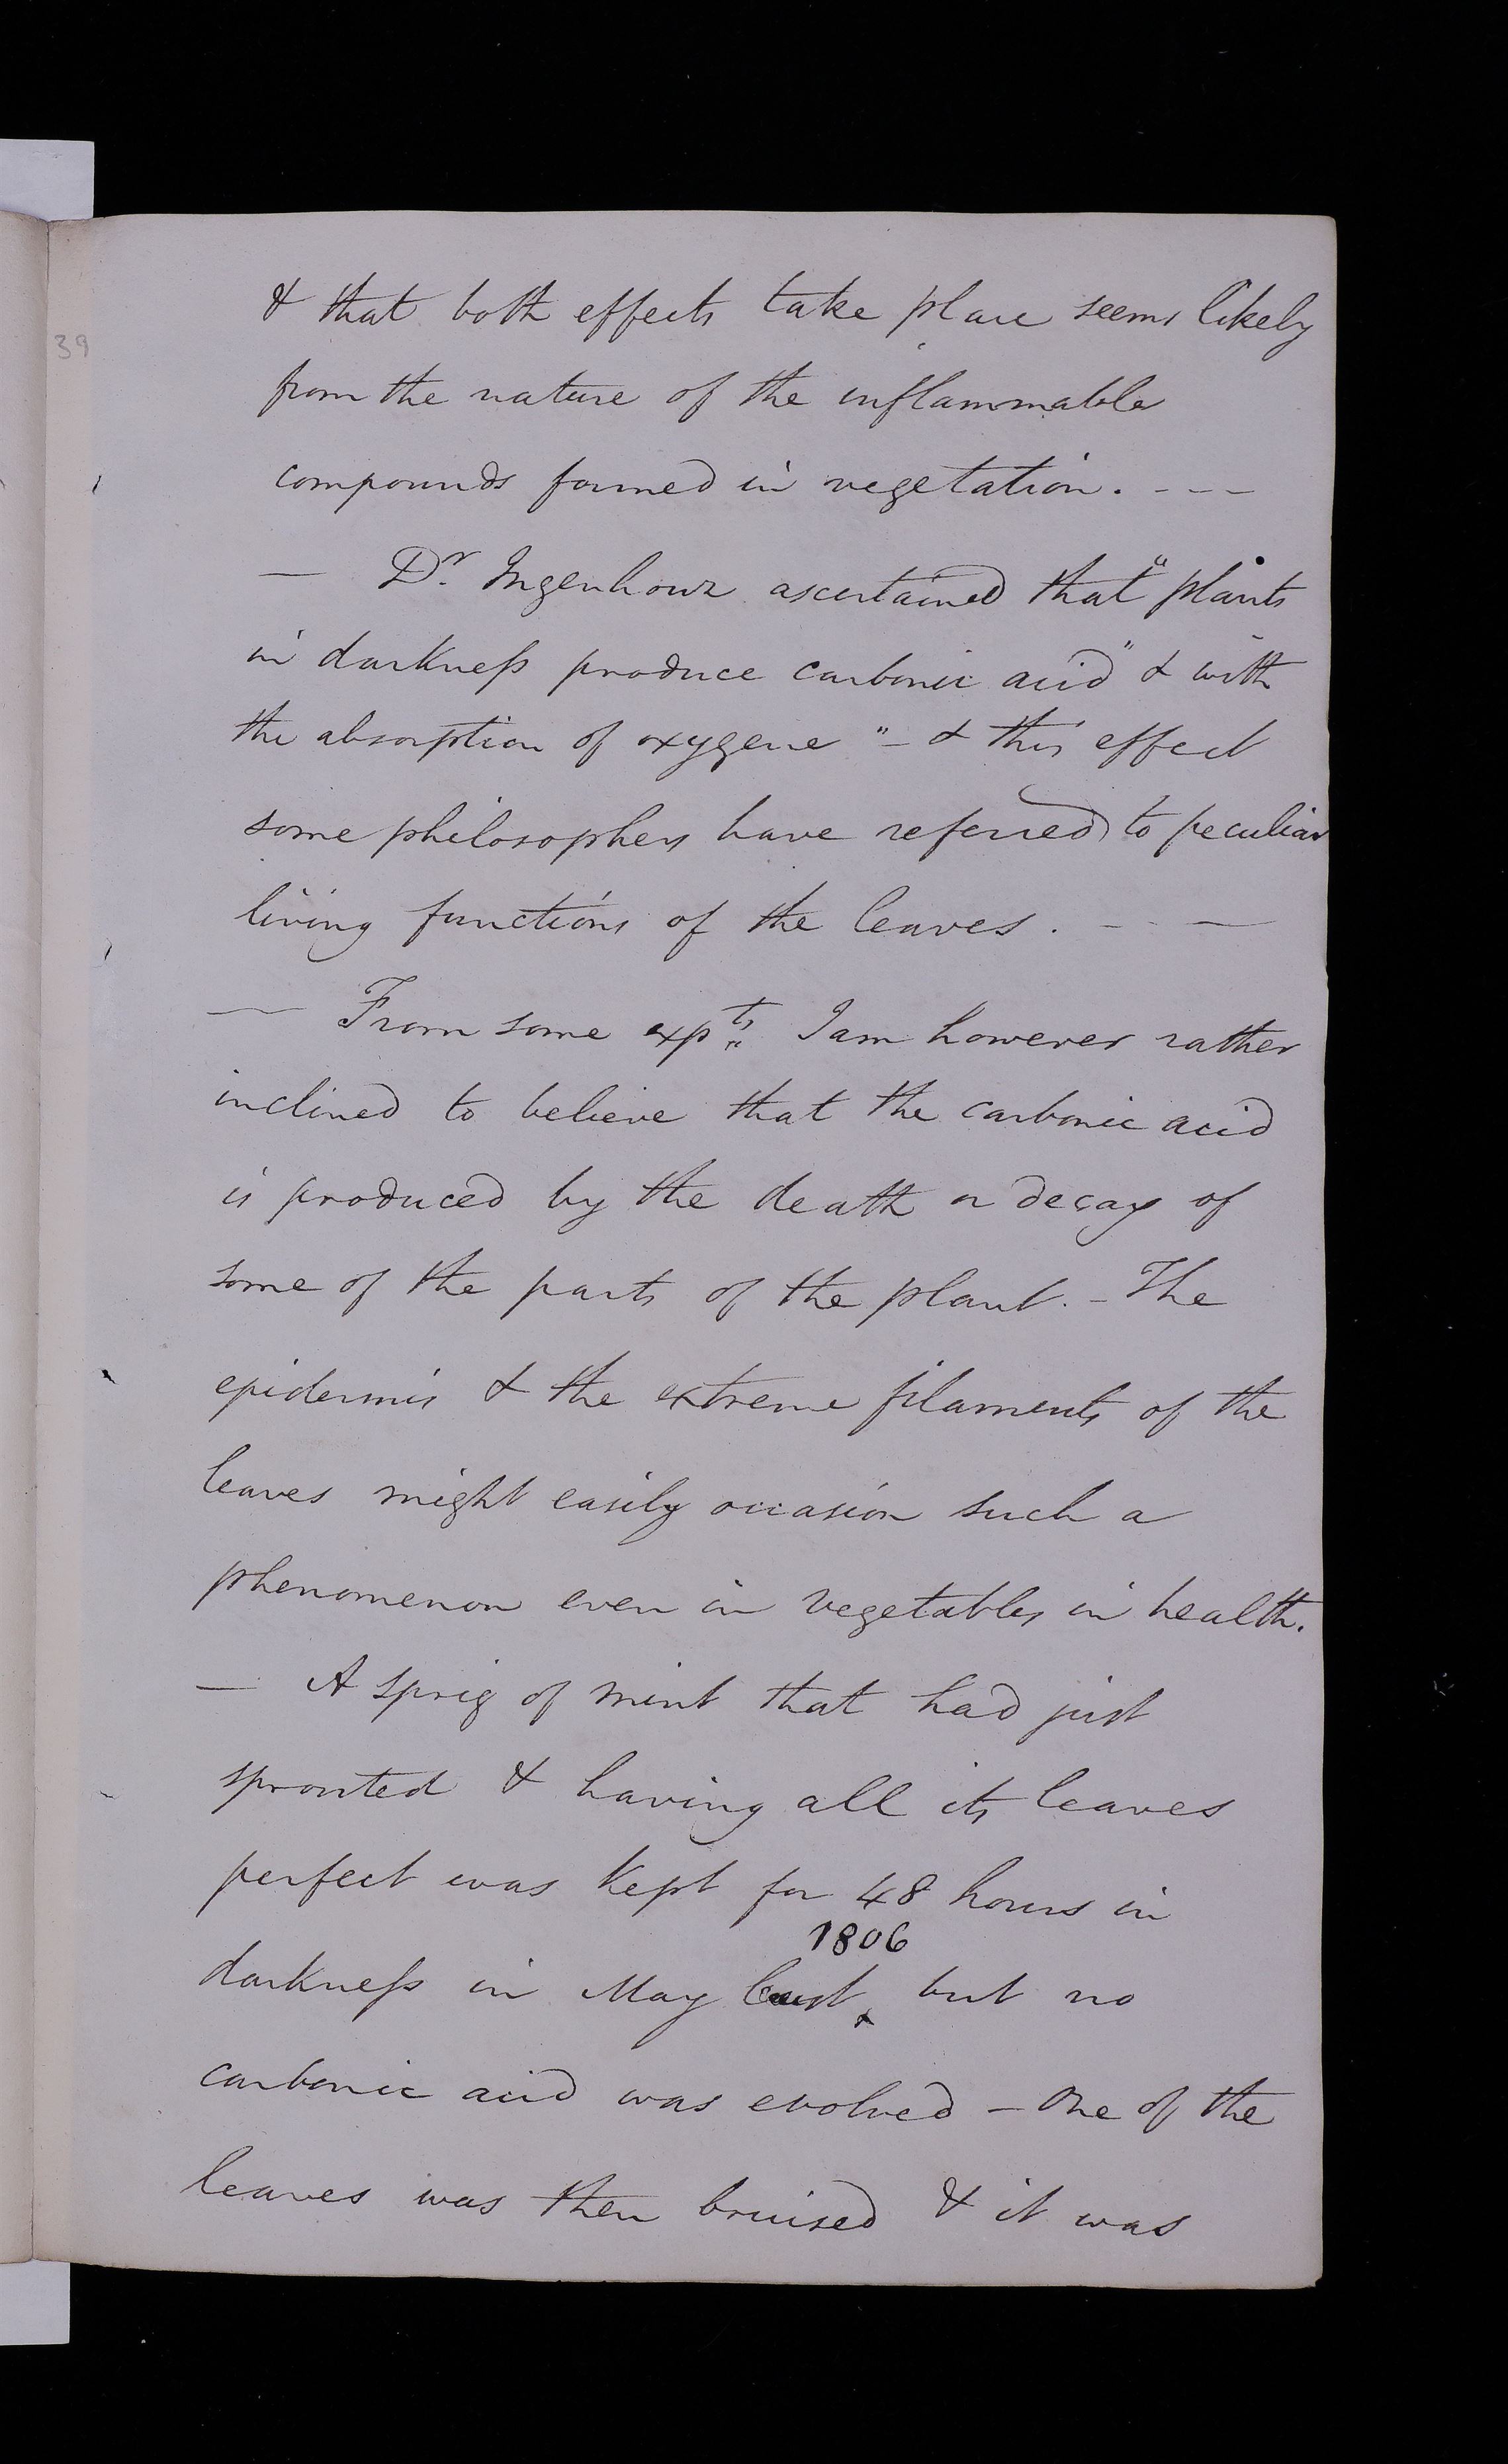 39
& that both effects take place seems likely
from the nature of the inflammable
compounds formed in vegetation. - - -
— Dr. Ingenhouz ascertained that "plants
in darkneſs produce carbonic acid" & with
the absorption of oxygene "- & this effect
some philosophers have referred to peculiar
living functions of the leaves. - - —
— From some expts. I am however rather
inclined to believe that the carbonic acid
is produced by the death or decay of
some of the parts of the plant. - The
epidermis & the extreme filaments of the
leaves might easily occasion such a
phenomenon even in vegetables in health.
— A sprig of mint that had just
sprouted & having all its leaves
perfect was kept for 48 hours in
1806
darkneſs in May last, but no
carbonic acid was evolved - One of the
leaves was then bruised & it was